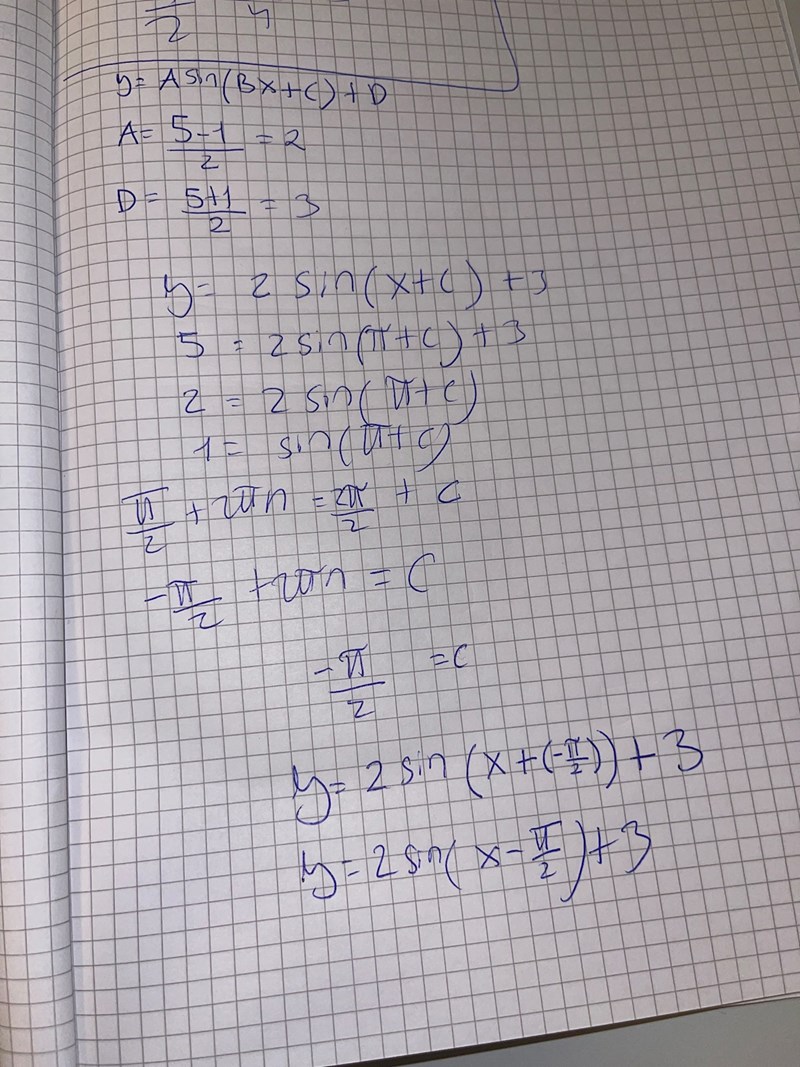 2 4
y = A sin(Bx+C)+D
A = \frac{5-1}{2} = 2
D = \frac{5+1}{2} = 3
y = 2 sin(x+C)+3
5 = 2 sin(π+C)+3
2 = 2 sin(π+C)
1 = sin(π+C)
\frac{π}{2} + 2πn = \frac{2π}{2} + C
-\frac{π}{2} + 2πn = C
-\frac{π}{2} = C
y = 2 sin(x+(-\frac{π}{2}))+3
y = 2 sin(x-\frac{π}{2})+3